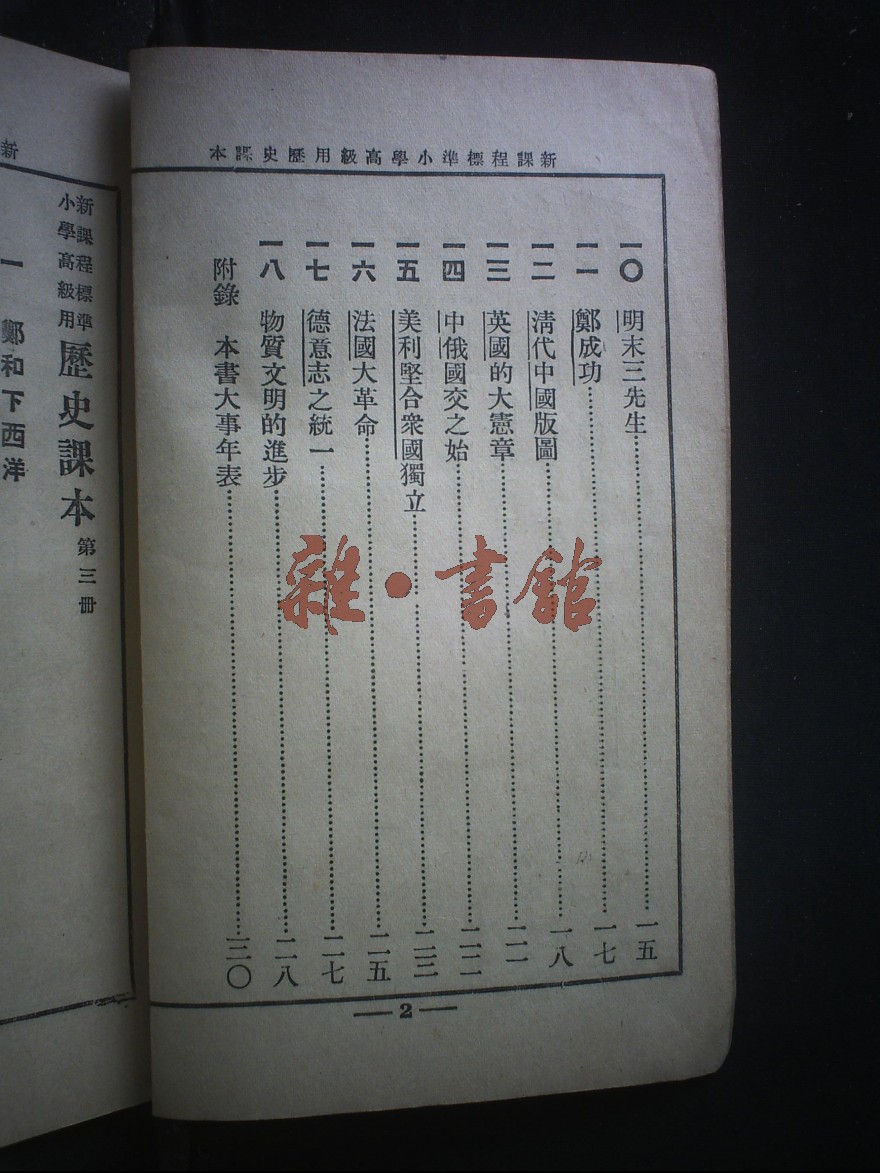 新課程標準小學高級用歷史課本
一〇 明末三先生……一五
一一 鄭成功……一七
一二 清代中國版圖……一八
一三 英國的大憲章……二一
一四 中俄國交之始……二二
一五 美利堅合衆國獨立……二三
一六 法國大革命……二五
一七 德意志之統一……二七
一八 物質文明的進步……二八
附錄 本書大事年表……三〇
—2—
新
新課程標準
小學高級用
歷史課本 第三冊
一 鄭和下西洋
雜·書館